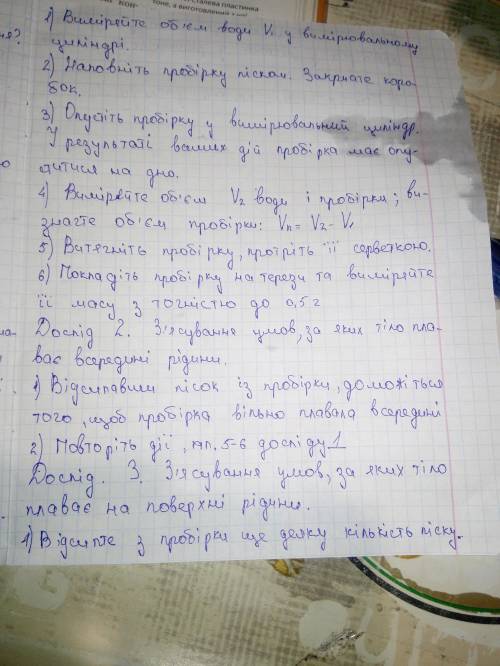 сталева пластинка
кон-
тоне, а виготовлений з
1) Виміряйте об'єм води V₁ у вимірювальному
циліндрі.
2) Наповніть пробірку піском. Закрийте коро-
бок.
3) Опустіть пробірку у вимірювальний циліндр.
У результаті ваших дій пробірка має опу-
ститися на дно.
4) Виміряйте об'єм V₂ води і пробірки; ви-
значте об'єм пробірки: Vп = V₂ - V₁
5) Витягніть пробірку, протріть її серветкою.
6) Покладіть пробірку на терези та виміряйте
її масу з точністю до 0,5 г
Дослід 2. З'ясування умов, за яких тіло пла-
ває всередині рідини.
1) Відсипавши пісок із пробірки, доможіться
того, щоб пробірка вільно плавала всередині
2) Повторіть дії, пп. 5-6 досліду 1
Дослід. 3. З'ясування умов, за яких тіло
плаває на поверхні рідини.
1) Відсипте з пробірки ще деяку кількість піску.